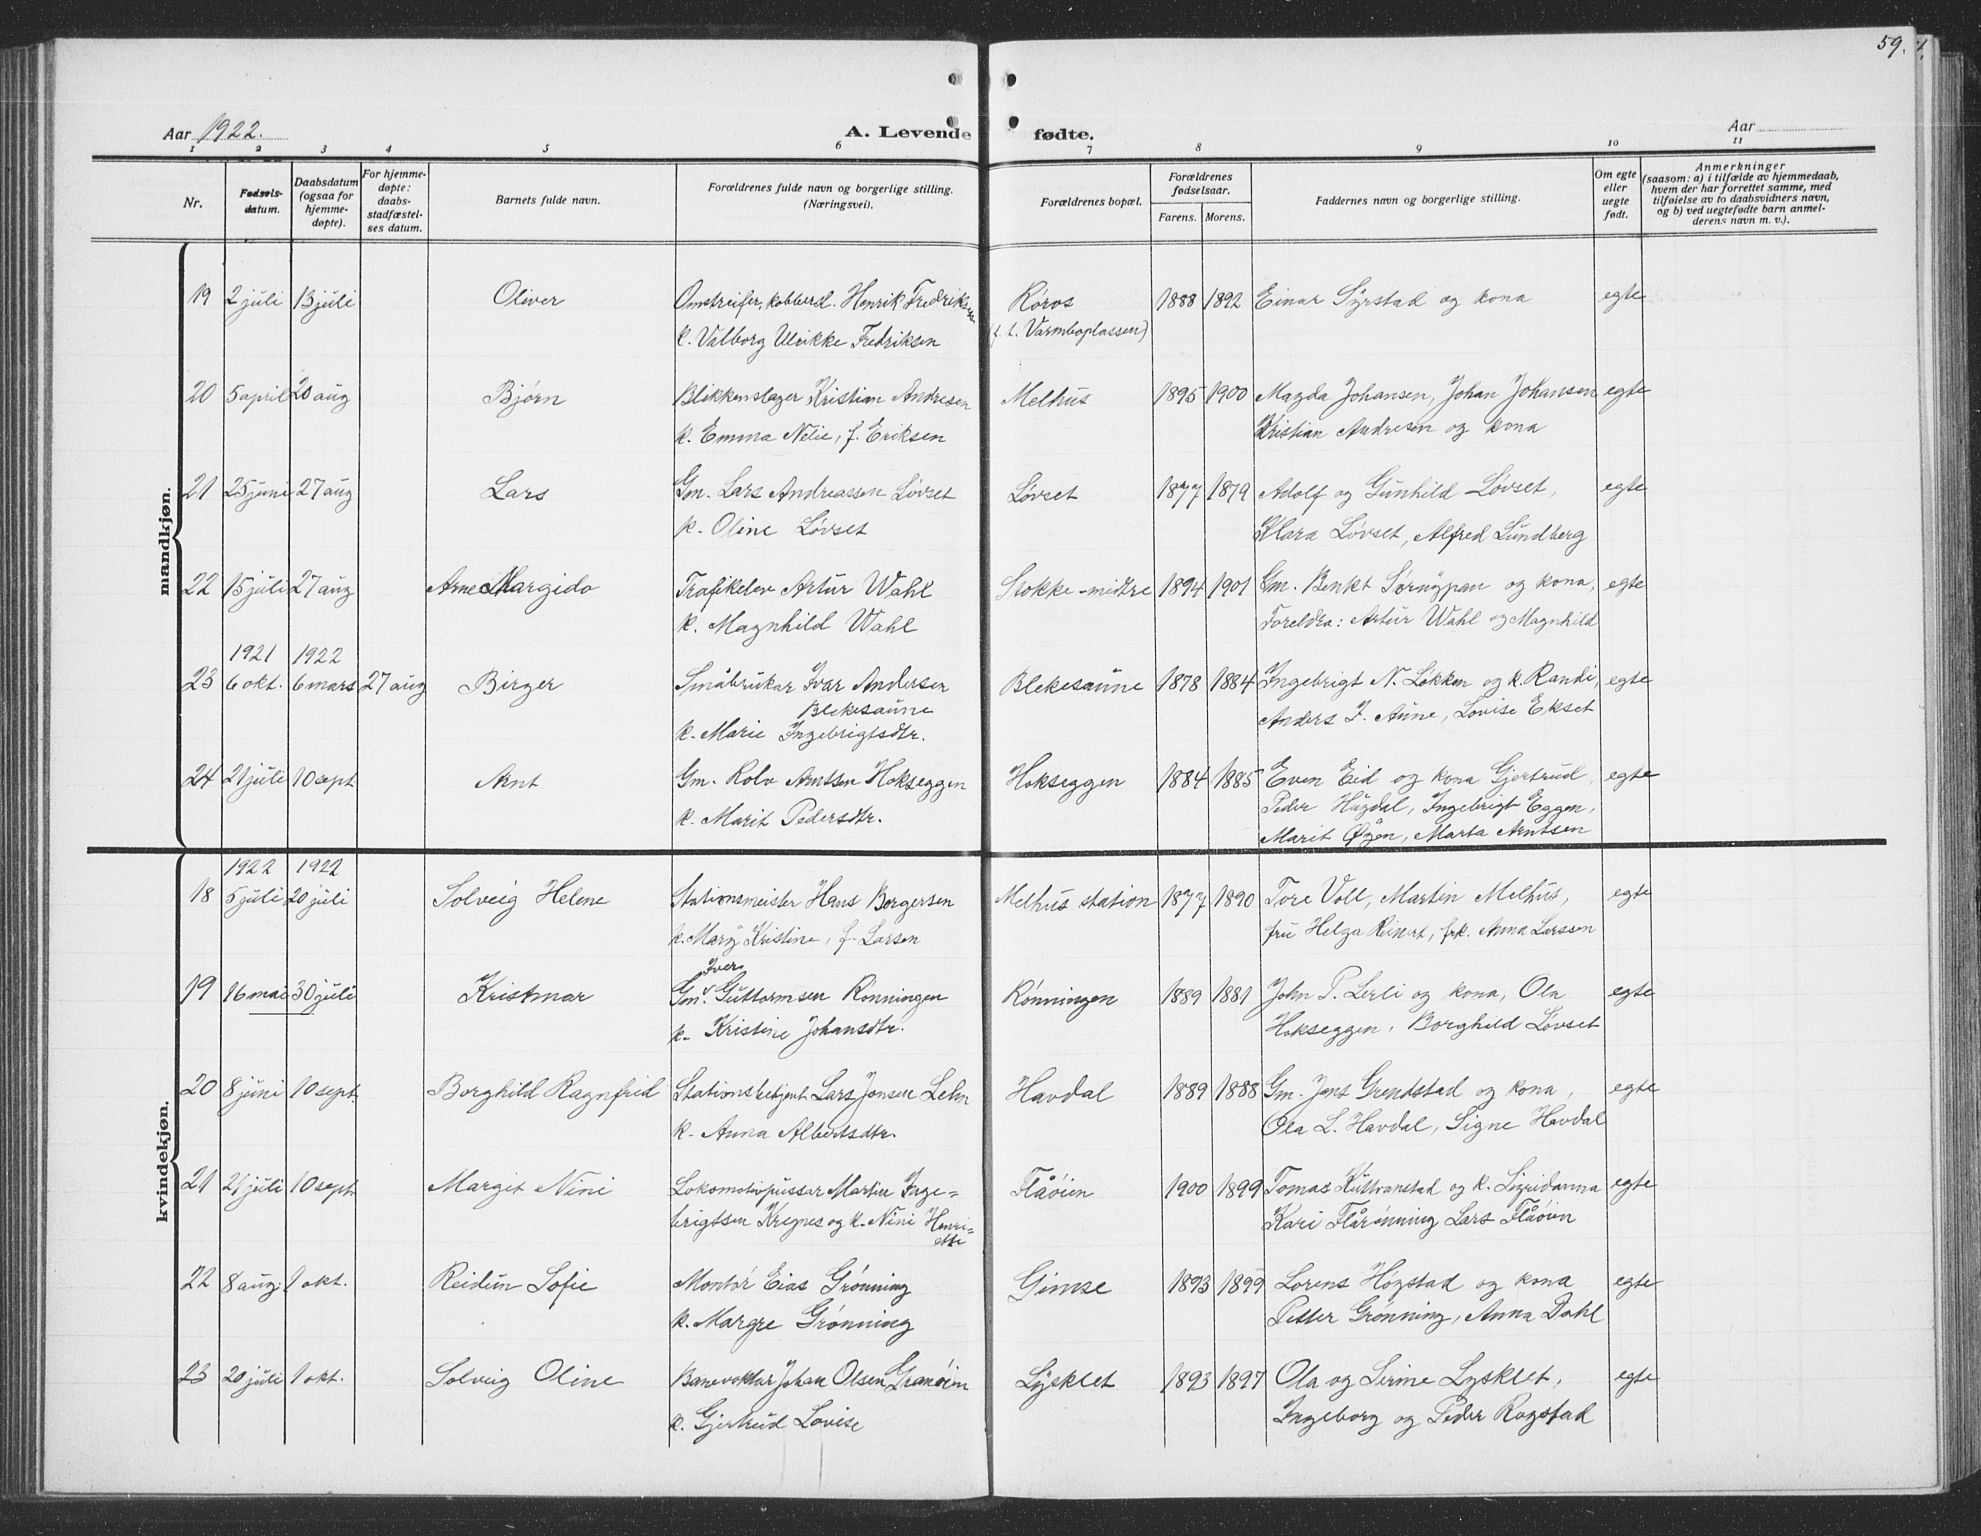 59.
Aar 1922.
A. Levende fødte.
Aar
1 2 3 4 5 6 7 8 9 10 11
Nr.
Fødsels-datum.
Daabsdatum (ogsaa for hjemme-døpte).
For hjemme-døpte: daabs-stadfæstel-ses datum.
Barnets fulde navn.
Forældrenes fulde navn og borgerlige stilling. (Næringsvei).
Forældrenes bopæl.
Forældrenes fødselsaar.
Farens. Morens.
Faddernes navn og borgerlige stilling.
Om egte eller uegte født.
Anmerkninger (saasom: a) i tilfælde av hjemmedaab, hvem der har forrettet samme, med tilføielse av to daabsvidners navn, og b) ved uegtefødte barn anmel-derens navn m. v.).
mandkjøn.
19 2 juli 13 juli Oliver Omstreifer, kobberd. Henrik Fredriksen Røros 1888 1892 Einar Syrstad og kona egte
k. Valborg Ulrikke Fredriksen (f. t. Varmboplassen)
20 5 april 20 aug Bjørn Blikkenslager Kristian Andresen Melhus 1895 1900 Magda Johansen, Johan Johansen egte
k. Emma Nelie, f. Eriksen Kristian Andresen og kona
21 25 juni 27 aug Lars Gm. Lars Andreassen Løvset Løvset 1877 1879 Adolf og Gunhild Løvset, egte
k. Oline Løvset Klara Løvset, Alfred Lundberg
22 15 juli 27 aug Arne Margido Trafikelev Artur Wahl Stokke-midtre 1894 1901 Gm. Benkt Sørnypan og kona, egte
k. Magnhild Wahl Foreldra: Artur Wahl og Magnhild
1921 1922
23 6 okt. 6 mars 27 aug Birger Småbrukar Ivar Andersen Blekesaune 1878 1884 Ingebrigt N. Løkken og k. Randi, egte
Blekesaune
k. Marie Ingebrigtsdtr. Anders J. Aune, Lovise Ekset
24 21 juli 10 sept Arnt Gm. Rolv Arntsen Hokseggen Hokseggen 1884 1885 Even Eid og kona Gjertrud, egte
k. Marit Pedersdtr. Peder Hagdal, Ingebrigt Eggen,
Marit Øyen, Marta Arntsen
kvindekjøn.
1922 1922
18 5 juli 20 juli Solveig Helene Stationsmeister Hans Borgersen Melhus station 1877 1890 Tore Voll, Martin Melhus, egte
k. Mary Kristine, f. Larsen fru Helga Reinert, frk. Anna Larssen
Iver
19 16 mai 30 juli Kristmar Gm. Guttormsen Rønningen Rønningen 1889 1881 John P. Lerli og kona, Ola egte
k. Kristine Johansdtr. Hokseggen, Borghild Løvset
20 8 juni 10 sept. Borghild Ragnfrid Stationsbetjent Lars Jonsen Lehn Havdal 1889 1888 Gm. Jens Grendstad og kona, egte
k. Anna Albertsdtr. Ola L. Havdal, Signe Havdal
21 21 juli 10 sept. Margit Nini Lokomotivpussar Martin Inge= Flåøien 1900 1899 Tomas Kuttranstad og k. Sigridanna egte
brigtsen Kregnes og k. Nini Henri=
ette Kari Flårønning Lars Flåøien
22 8 aug. 1 okt. Reidun Sofie Montør Eias Grønning Gimse 1893 1899 Lorens Høgstad og kona egte
k. Margre Grønning Petter Grønning, Anna Dahl
23 20 juli 1 okt. Solveig Oline Banevoktar Johan Olsen Granøien Lysklet 1893 1897 Ola og Sirine Lysklet, egte
k. Gjertrud Lovise Ingeborg og Peder Rogstad